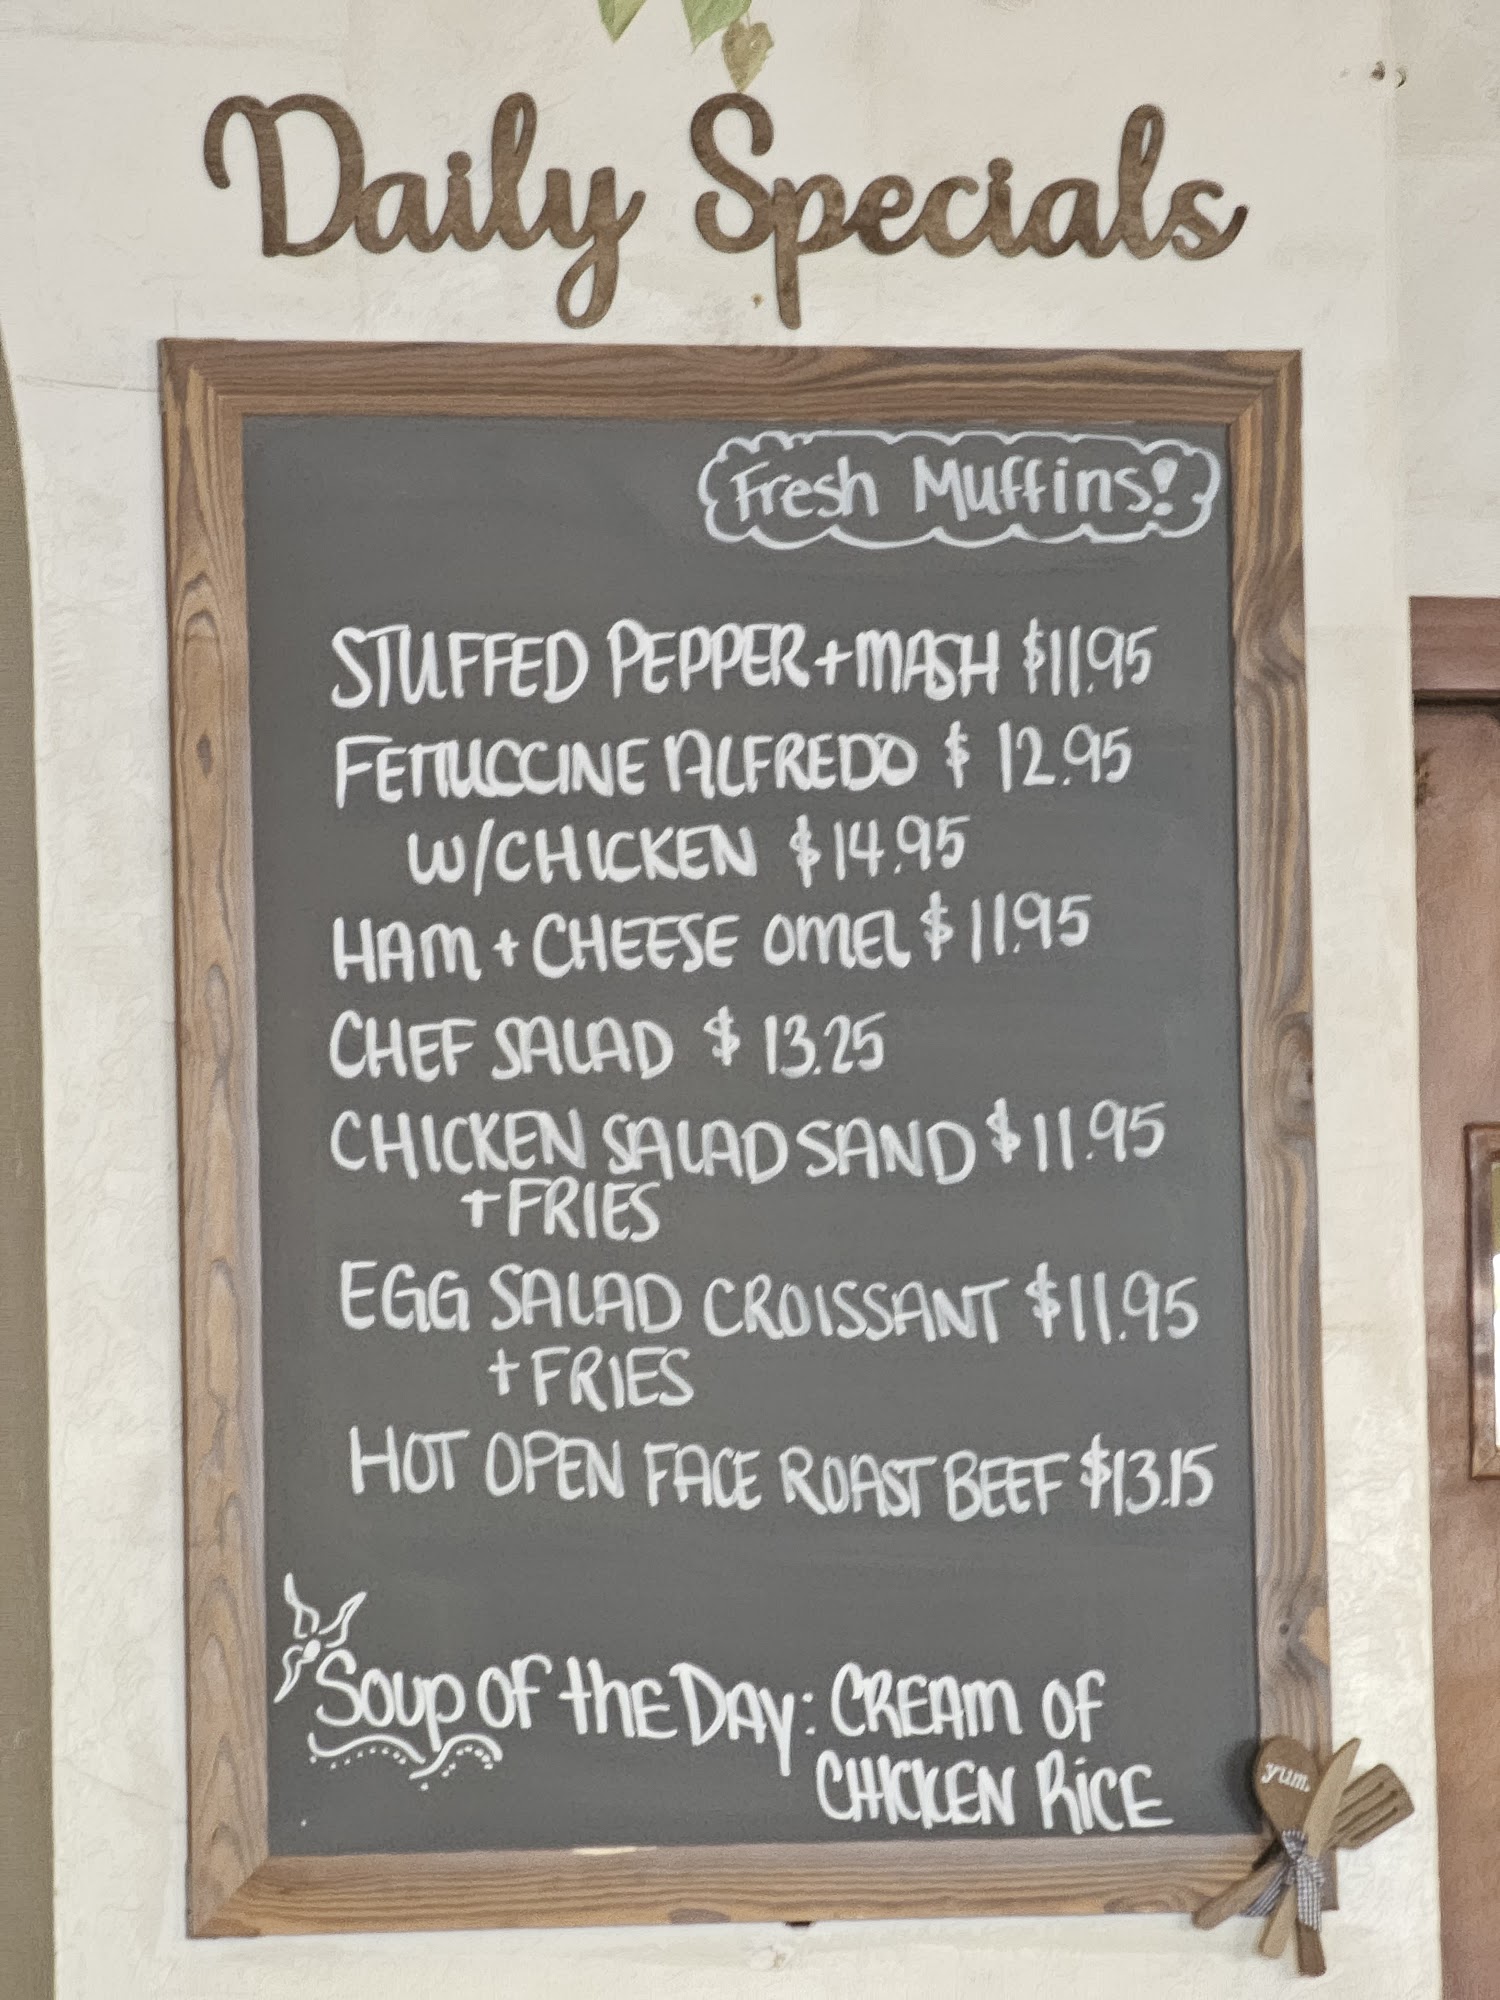 Daily Specials
Fresh Muffins!
STUFFED PEPPER + MASH $11.95
FETTUCCINE ALFREDO $ 12.95
W/CHICKEN $14.95
HAM + CHEESE OMEL $11.95
CHEF SALAD $ 13.25
CHICKEN SALAD SAND $11.95
+ FRIES
EGG SALAD CROISSANT $11.95
+ FRIES
HOT OPEN FACE ROAST BEEF $13.15
Soup of the Day: CREAM OF
CHICKEN RICE
yum.